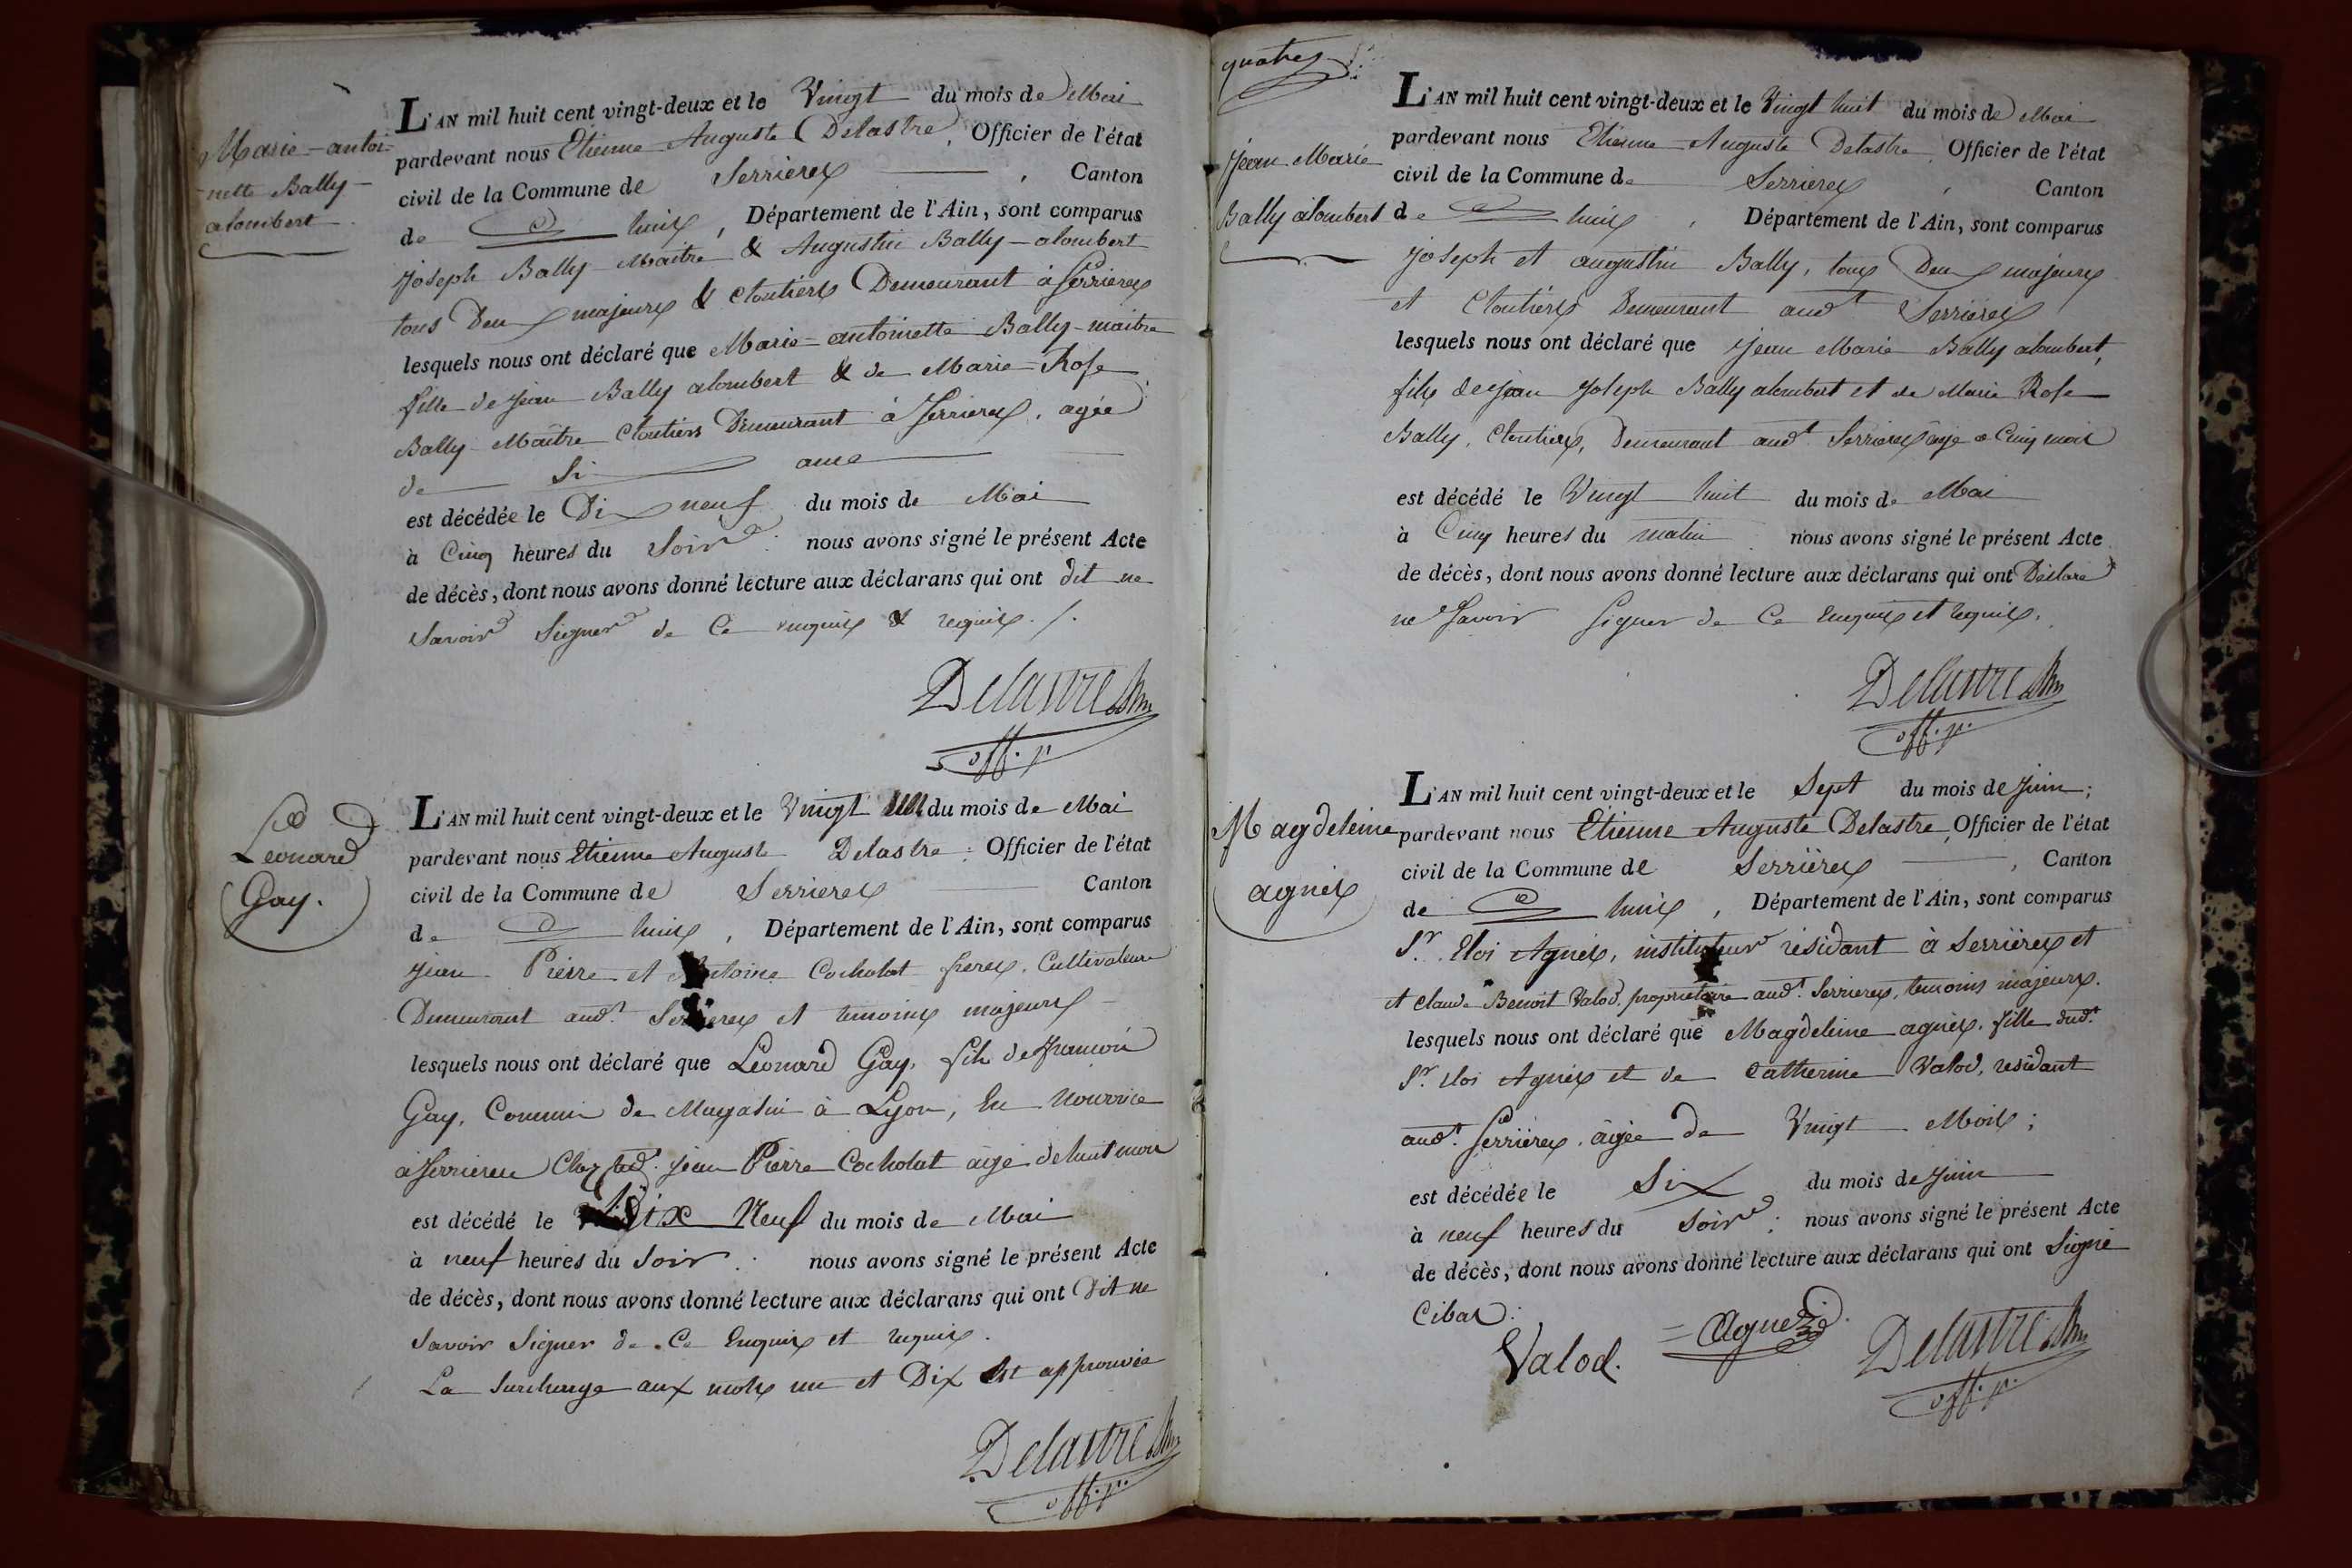 Marie-antoi-
-nette Bally-
alombert
L'AN mil huit cent vingt-deux et le Vingt du mois de Mai
pardevant nous Etienne Auguste Delastre, Officier de l'état
civil de la Commune de Serrieres, Canton
de huis, Département de l'Ain, sont comparus
joseph Bally Maitre & Augustin Bally-alombert
tous Deux majeurs & Cloutiers Demeurant à Serrieres
lesquels nous ont déclaré que Marie-antoinette Bally-maitre
fille de jean Bally alombert & de Marie-Rose
Bally Maître Cloutiers Demeurant à Serrieres, agée
de Six ans
est décédée le Dix neuf du mois de Mai
à Cinq heures du Soir: nous avons signé le présent Acte
de décès, dont nous avons donné lecture aux déclarans qui ont dit ne
Savoir Signer de Ce enquis & requis./.
Delastre
off. p.
Léonard
Gay.
L'AN mil huit cent vingt-deux et le Vingt un du mois de Mai
pardevant nous Etienne Auguste Delastre, Officier de l'état
civil de la Commune de Serrieres Canton
de huis, Département de l'Ain, sont comparus
jean Pierre et Antoine Cocholat freres, Cultivateurs
Demeurant aud.t Serrieres et temoins majeurs
lesquels nous ont déclaré que Léonard Gay, fils de françois
Gay, Commis de Magasin à Lyon, En Nourrice
à Serrieres Chez led.t jean Pierre Cocholat agé de huit mois
est décédé le Dix Neuf du mois de Mai
à neuf heures du Soir: nous avons signé le présent Acte
de décès, dont nous avons donné lecture aux déclarans qui ont Dit ne
Savoir Signer de Ce Enquis et requis.
La Surcharge aux mots un et Dix Est approuvée
Delastre
off. p.
quatre
jean Marie
Bally alombert
L'AN mil huit cent vingt-deux et le Vingt huit du mois de Mai
pardevant nous Etienne Auguste Delastre, Officier de l'état
civil de la Commune de Serrieres, Canton
de huis, Département de l'Ain, sont comparus
joseph et augustin Bally, tous Deux majeurs
et Cloutiers Demeurant aud.t Serrieres
lesquels nous ont déclaré que jean Marie Bally alombert,
fils de jean joseph Bally alombert et de Marie Rose
Bally, Cloutiers, Demeurant aud.t Serrieres agé de Cinq mois
est décédé le Vingt huit du mois de Mai
à Cinq heures du matin nous avons signé le présent Acte
de décès, dont nous avons donné lecture aux déclarans qui ont Déclaré
ne Savoir Signer de Ce Enquis et requis.
Delastre
off. p.
Magdeleine
agnés
L'AN mil huit cent vingt-deux et le Sept du mois de juin;
pardevant nous Etienne Auguste Delastre, Officier de l'état
civil de la Commune de Serriéres, Canton
de huis, Département de l'Ain, sont comparus
S.r Eloi Agnés, instituteur résidant à Serriéres et
et Claude Benoit Valod, proprietaire aud.t Serrieres, temoins majeurs.
lesquels nous ont déclaré que Magdeleine agnés, fille dud.t
S.r Eloi Agnés et de Catherine Valod, résidant
aud.t Serriéres, âgée de Vingt Mois;
est décédée le Six du mois de juin
à neuf heures du Soir; nous avons signé le présent Acte
de décès, dont nous avons donné lecture aux déclarans qui ont Signé
Cibas:
Valod.
Agnez
Delastre
off. p.